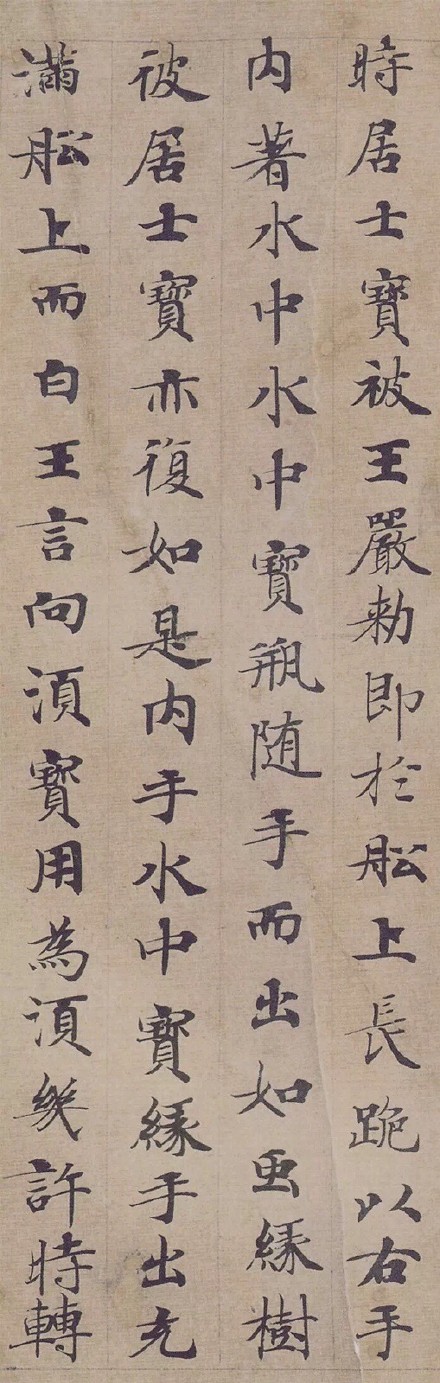 時居士寶被王嚴勅即於舩上長跪以右手
内著水中水中寶瓶随手而出如虫縁樹
彼居士寶亦復如是内手水中寶縁手出充
滿舩上而白王言向湏寶用為湏㡬許時轉